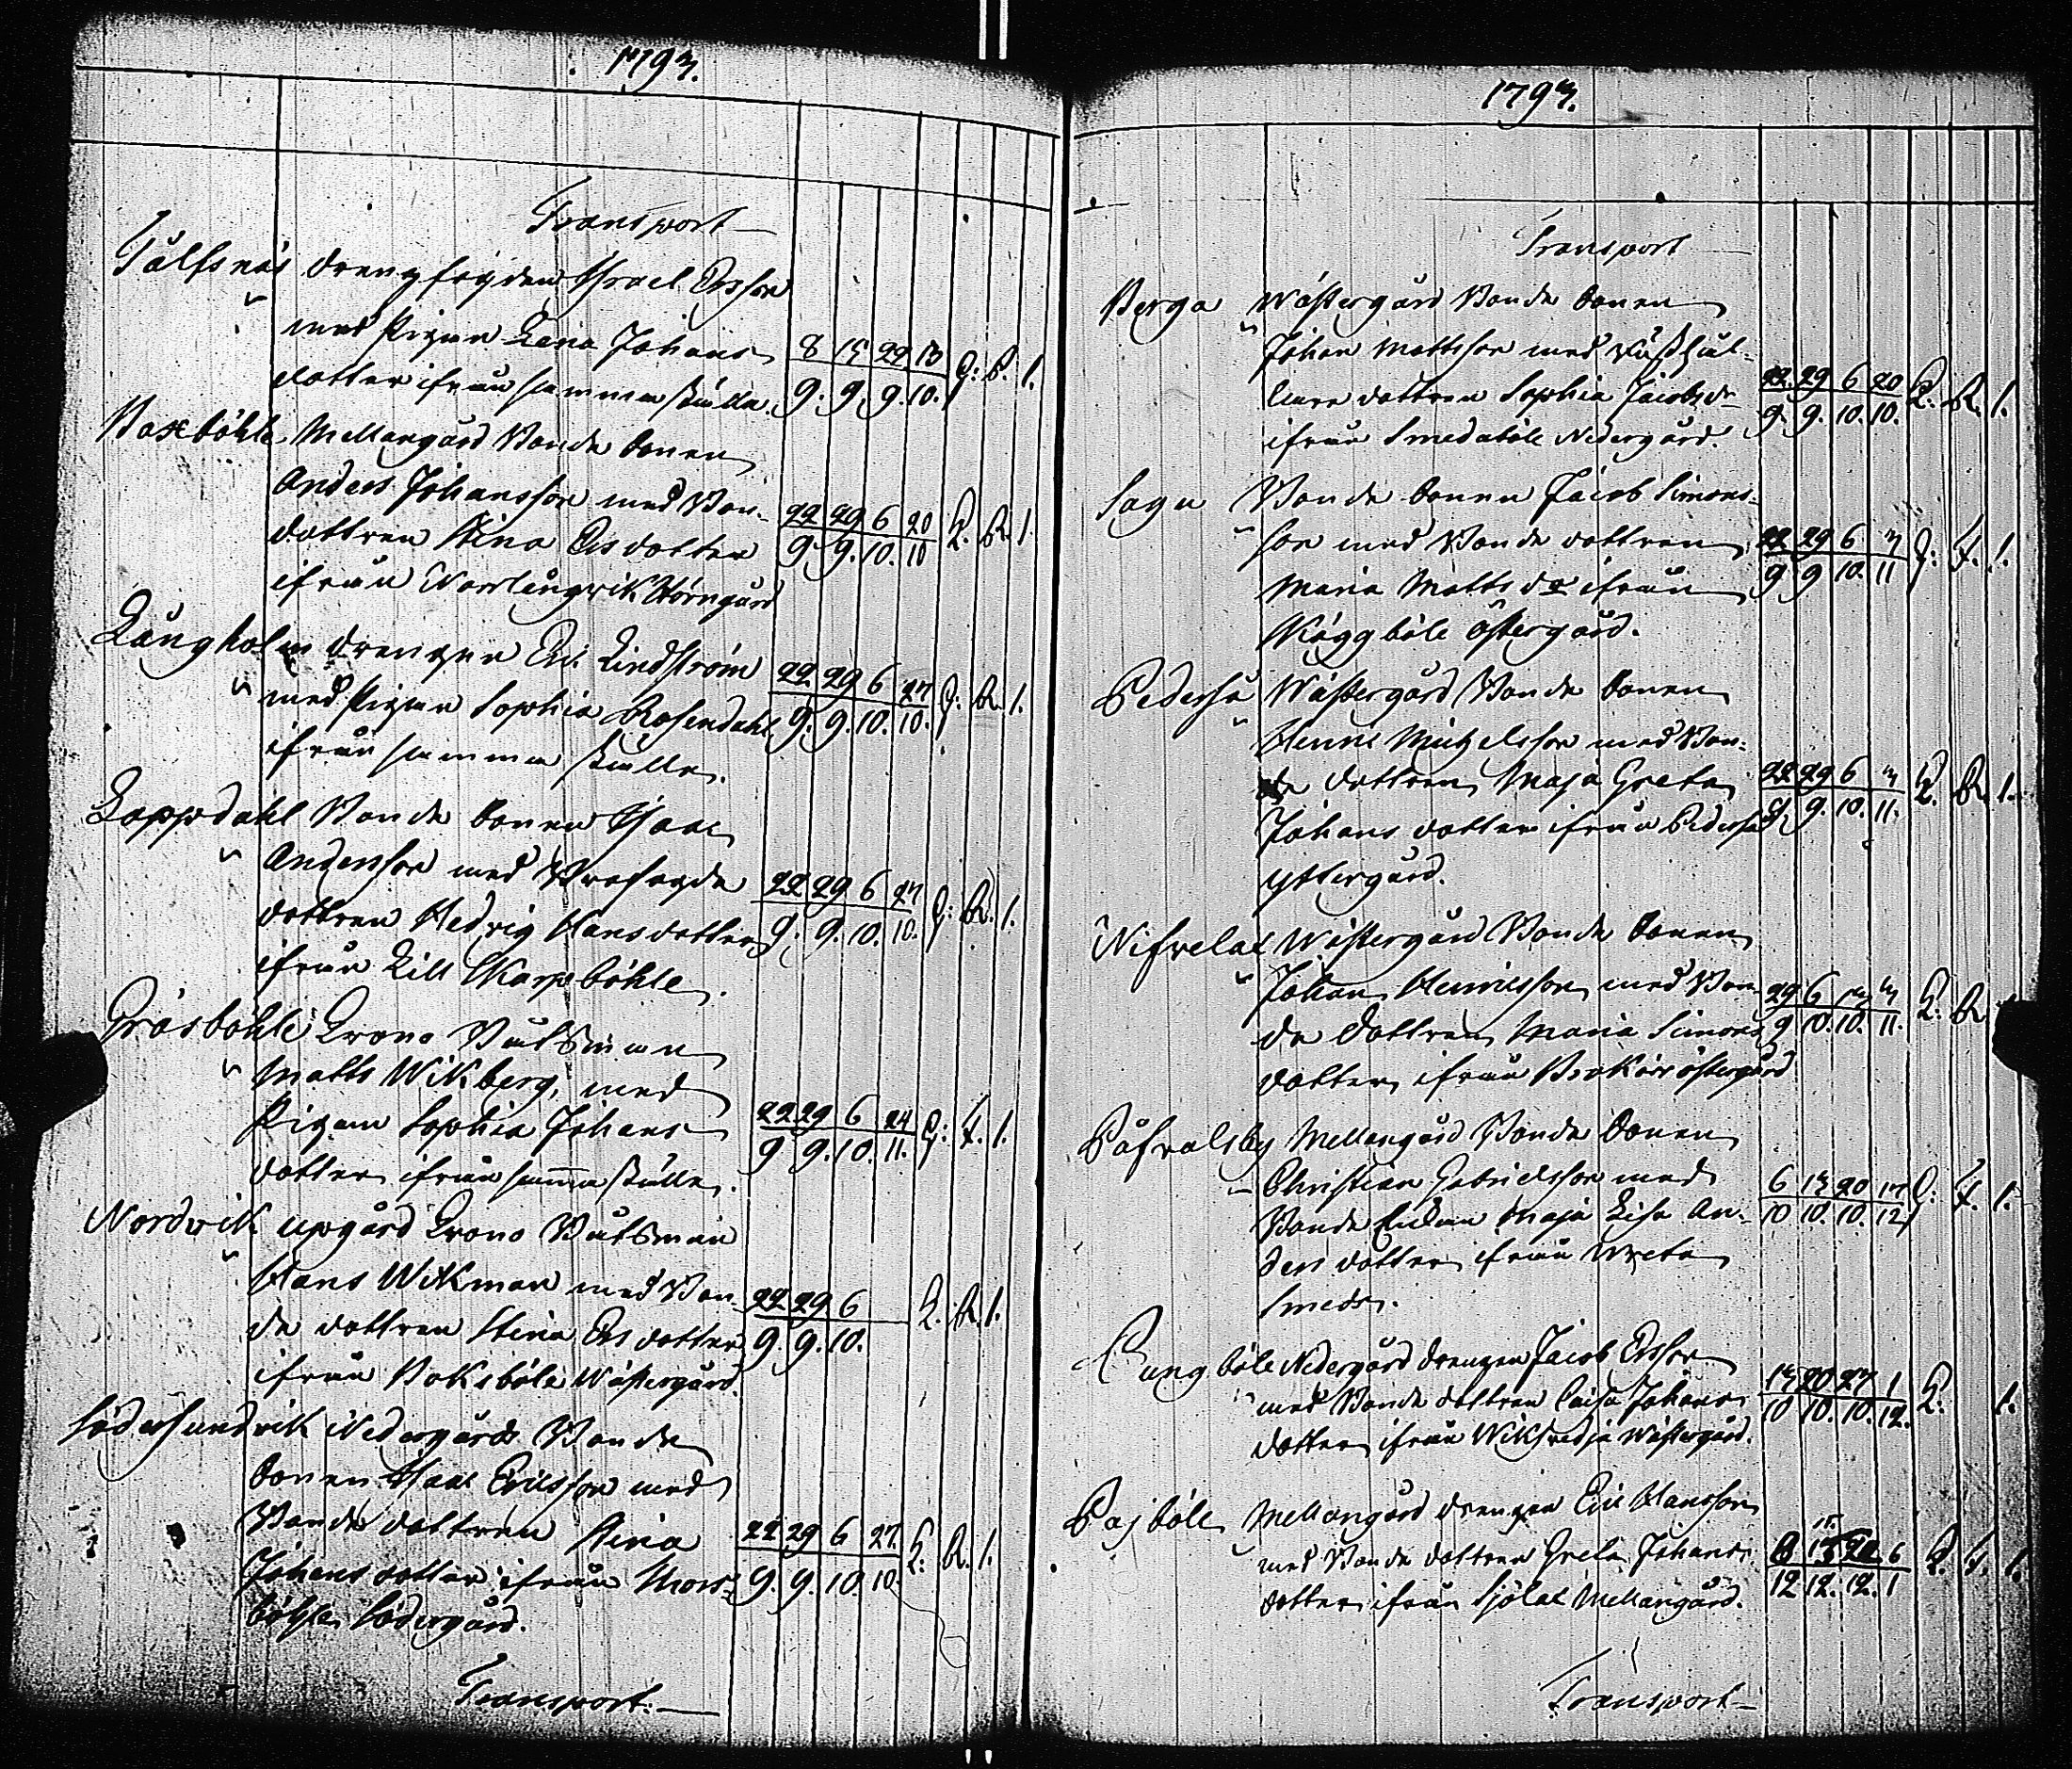 1793.
Transport
Tålfsnäs drengfogden Israel Ersson
med Pigan Lena Johans
dotter ifrån samma ställe.
8 15 22 13
9. 9. 9. 10. G: B. 1.
Boxböhle Mellangård Bonde Sonen
Anders Johansson med Bon-
dottren Stina Ersdotter
ifrån Norrlångvik Störngård
22 29 6 20
9. 9. 10. 10 L. B. 1.
Långholm drengen Eric Lindström
med Pigan Sophia Rosendahl
ifrån samma ställe.
22 29 6 27
9. 9. 10. 10. G: B. 1.
Lappdahl Bonde Sonen Isaac
Andersson med
dottren Hedvig Hansdotter
ifrån Lill Skarpböhle.
22 29 6 27
9. 9. 10. 10. G: B. 1.
Gräsböhle Crono Båtsman
Matts Wikberg, med
Pigan Sophia Johans
dotter ifrån samma ställe.
22 29 6 24
9 9. 10. 11. G: F. 1.
Nordvik upgård Crono Båtsman
Hans Wikman med Bon-
de dottren Stina Ersdotter
ifrån Boksböle Wästergård.
22 29 6
9. 9. 10. L. B. 1.
Södersundvik Nedergårds Bonde
Sonen Isaac Ericsson med
Bonde dottren Stina
Johans dotter ifrån Mors-
böhle Södergård.
22 29 6 27.
9. 9. 10. 10. L: B. 1.
Transport.
1793.
Transport
Berga Wästergård Bonde Sonen
Johan Mattsson med
dottren Sophia Jacobsdr
ifrån Smedaböle Nedergård.
22 29 6 20
9. 9. 10. 10. L. B. 1.
Sagu Bonde Sonen Jacob Simons-
son med Bonde dottren
Maria Matts dr ifrån
Skäggböle Östergård.
22 29 6 3
9 9 10. 11 G: F. 1.
Pederså Wästergård Bonde Sonen
Henric Michelsson med Bon-
de dottren Maja Greta
Johans dotter ifrån Pederså
Yttergård.
22 29 6 3
9. 9. 10. 11. L. B. 1.
Nifvelax Wästergård Bonde Sonen
Johan Henricsson med Bon-
de dottren Maria Simons
dotter ifrån Brokärr Östergård
29 6 13 3
9 10. 10. 11. L. B.
Påfvalsby Mellangård Bonde Sonen
Christian Gabrielsson med
Bonde Enkan Maja Lisa An-
ders dotter ifrån Wreta
Smeds.
6 13 20 17
10 10. 10. 12 G: F. 1.
Pungböle Nedergård drengen Jacob Ersson
med Bonde dottren Caisa Johans
dotter ifrån Wiksvedja Wästergård.
13 20 27 1
10 10. 10. 12. L. 1.
Pajböle Mellangård drengen Eric Hansson
med Bonde dottren Greta Johans
dotter ifrån Sjölax Mellangård.
15.
6
12 12. 12. 1 L. F. 1.
Transport